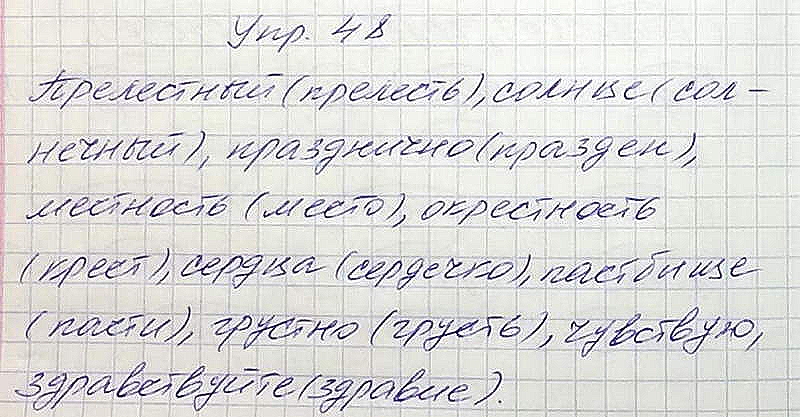 Упр. 48
Прелестный (прелесть), солнце (сол-
нечный), празднично (празден),
местность (место), окрестность
(крест), сердца (сердечко), пастбище
(пасти), грустно (грусть), чувствую,
здравствуйте (здравие).